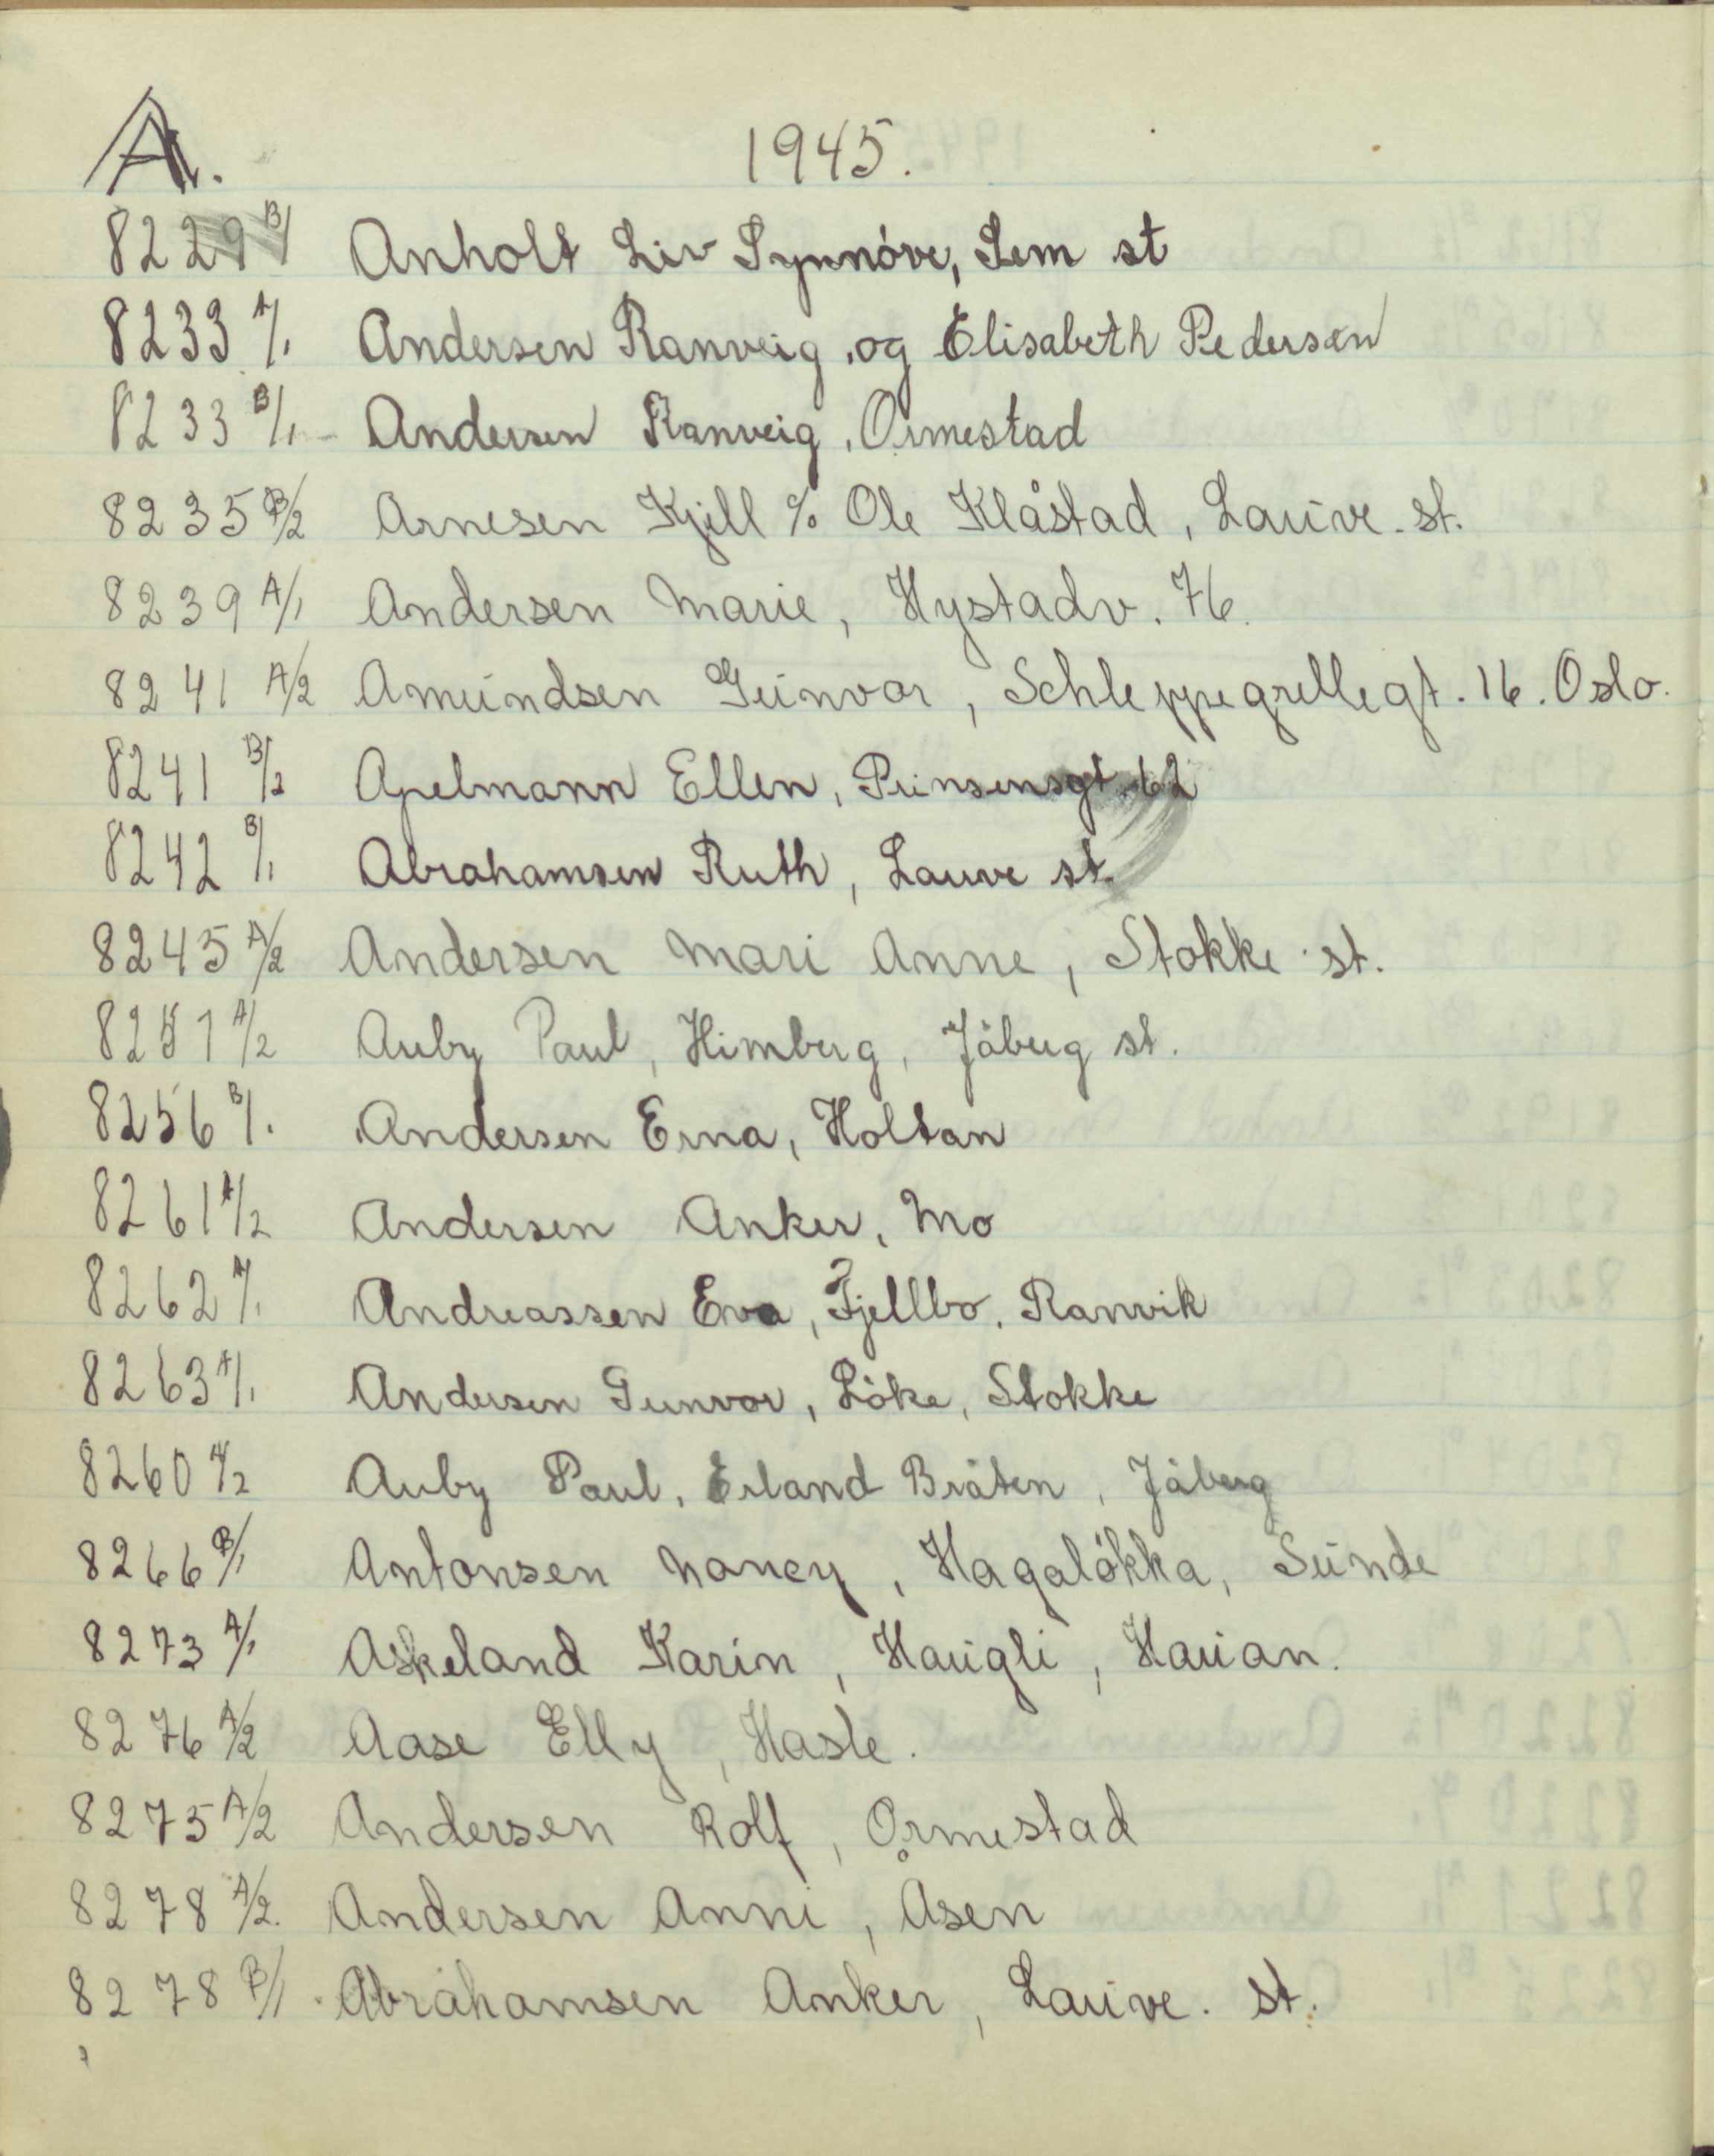 A. 1945.
8229 B/1 Anholt Liv Synnóve, Sem st
8233 A/1 Andersen Ranveig, og Elisabeth Pedersen
8233 B/1 - Andersen Ranveig, Ormestad
8235 B/2 Arnesen Kjell % Ole Klåstad, Lauve. st.
8239 A/1 Andersen Marie, Hystadv. 76.
8241 A/2 Amundsen Gunvor, Schleppegrellegt. 16. Oslo.
8241 B/2 Apelmann Ellen, Prinsensgt. 62
8242 B/1 Abrahamsen Ruth, Lauve st.
8245 A/2 Andersen Mari Anne, Stokke st.
8251 A/2 Auby Paul, Himberg, Jåberg st.
8256 B/1. Andersen Erna, Holtan
8261 A/2 Andersen Anker, Mo
8262 A/1 Andreassen Eva, Fjellbo, Ranvik
8263 A/1 Andersen Gunvor, Lóke, Stokke
8260 A/2 Auby Paul, Erland Bråten, Jåberg
8266 B/1 Antonsen Nancy, Hagalókka, Sunde
8273 A/1 Askeland Karin, Haugli, Hauan.
8276 A/2 Aase Elly, Hasle.
8275 A/2 Andersen Rolf, Ormestad
8278 A/2. Andersen Anni, Åsen
8278 B/1 Abrahamsen Anker, Lauve. st.